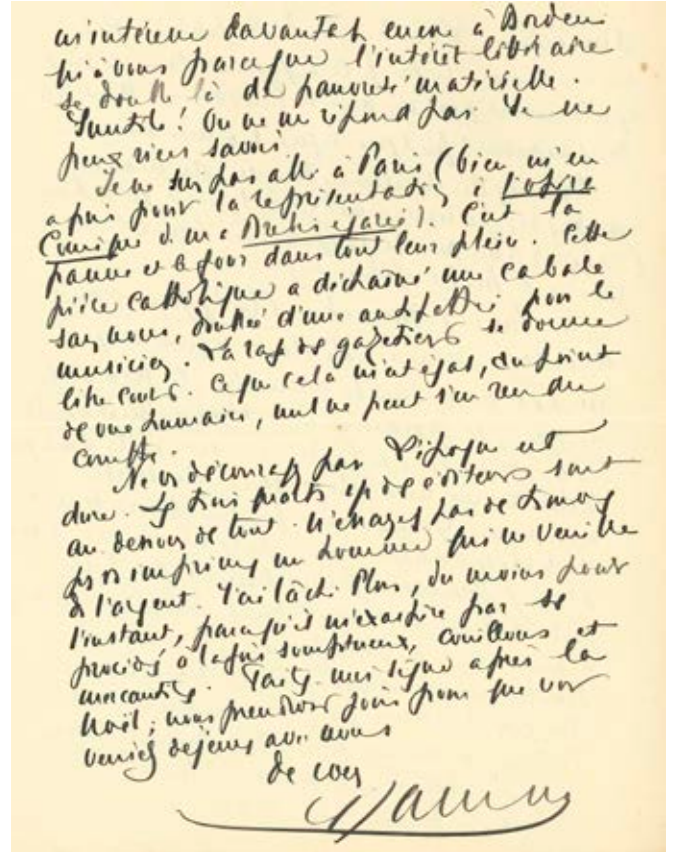 m'intéresse davantage encore à Bordeau
qu'à vous parce que l'intérêt littéraire
se double là de pauvreté matérielle.
Inutile ! On ne me répond pas. Je ne
peux rien savoir.
Je ne suis pas allé à Paris (bien m'en
a pris pour la représentation à l'opéra
Comique de ma Brebis égarée). C'est la
panne et le four dans tout leur plein. Cette
pièce catholique a déchaîné une cabale
sans nom, doublée d'une autre pour le
musicien. La rage de gazetiers se donne
libre cours. Ce que cela m'est égal, du point
de vue humain, nul ne peut s'en rendre
compte.
Ne vs découragez pas. L'époque est
dure. Les trois quarts des éditeurs sont
au dessous de tout. N'essayez pas de
vs imprimer un homme qui ne veuille
de l'argent. J'ai lâché Plon, du moins pour
l'instant, parce qu'il m'exaspère par ses
procédés à la fois somptueux, couillons et
mercantiles. Faites moi signe après la
Noël ; nous prendrons jour pour que vous
veniez déjeuner avec nous
de cœur
Jammes